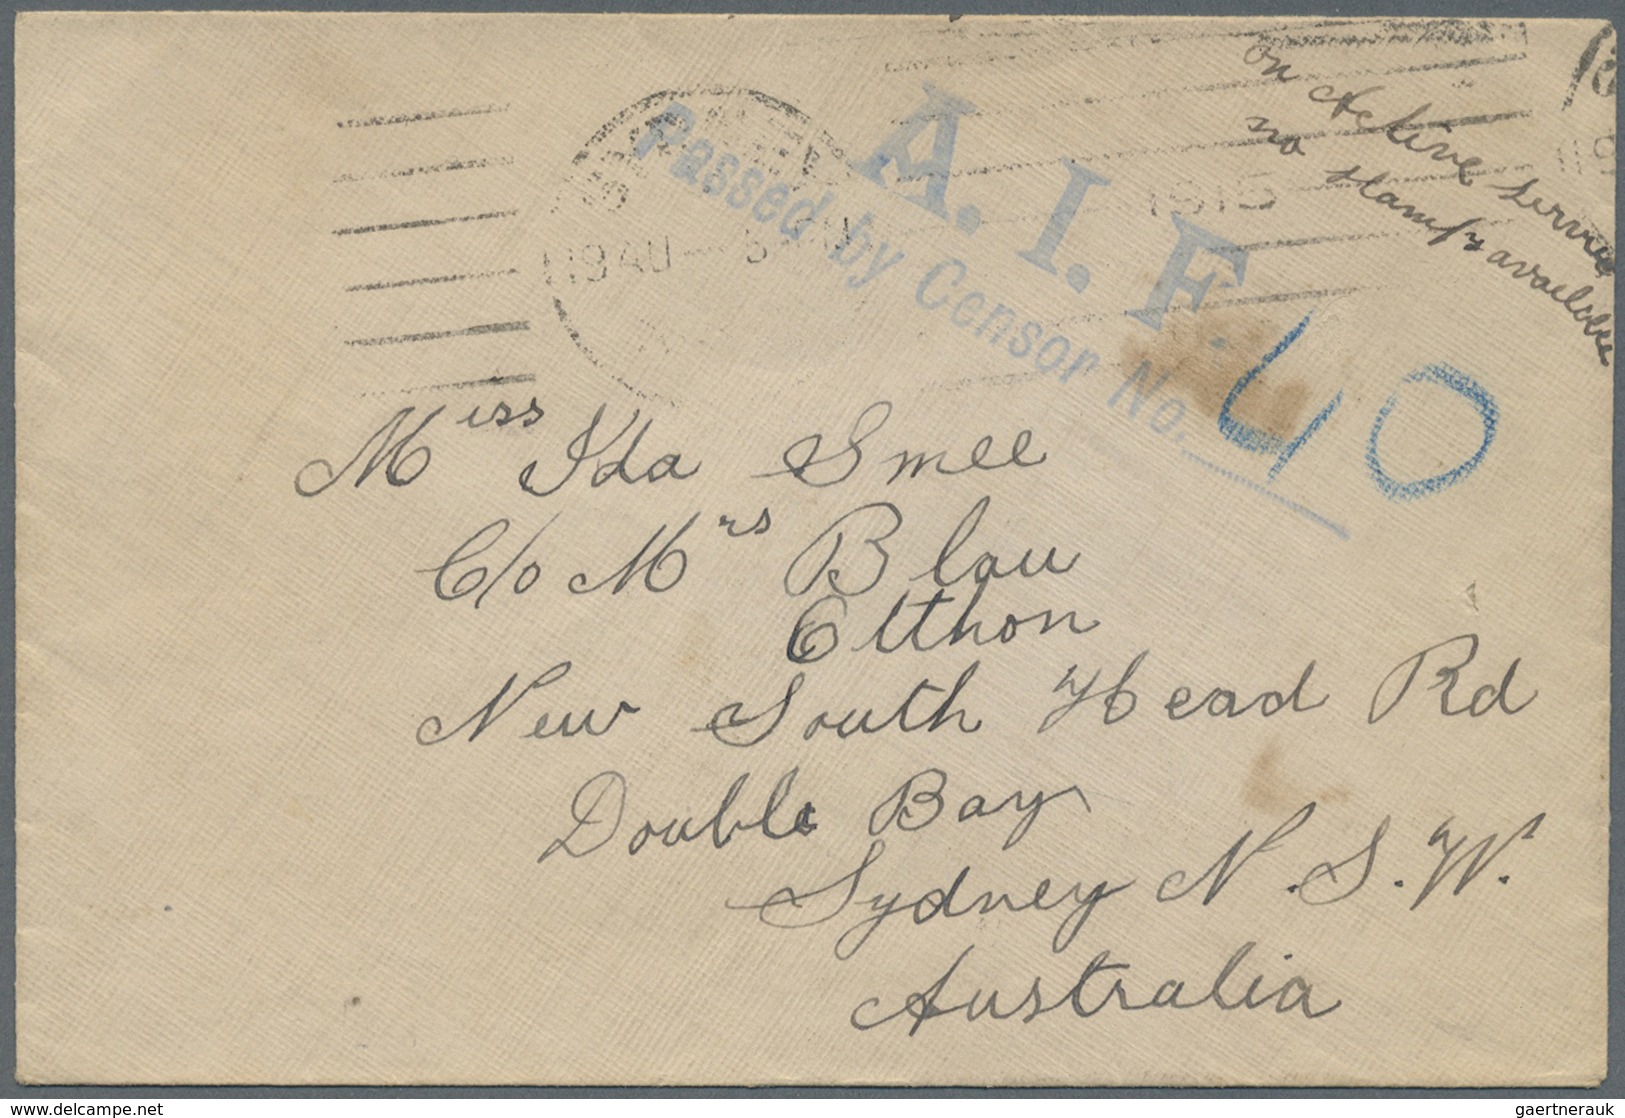 On Active Service
no stamps available
A. I. F.
Passed by Censor No. 40
19 AU
1915
Miss Ida Smee
C/o Mrs Blau
Elthon
New South Head Rd
Double Bay
Sydney N.S.W.
Australia
www.delcampe.net
gaertnerauk